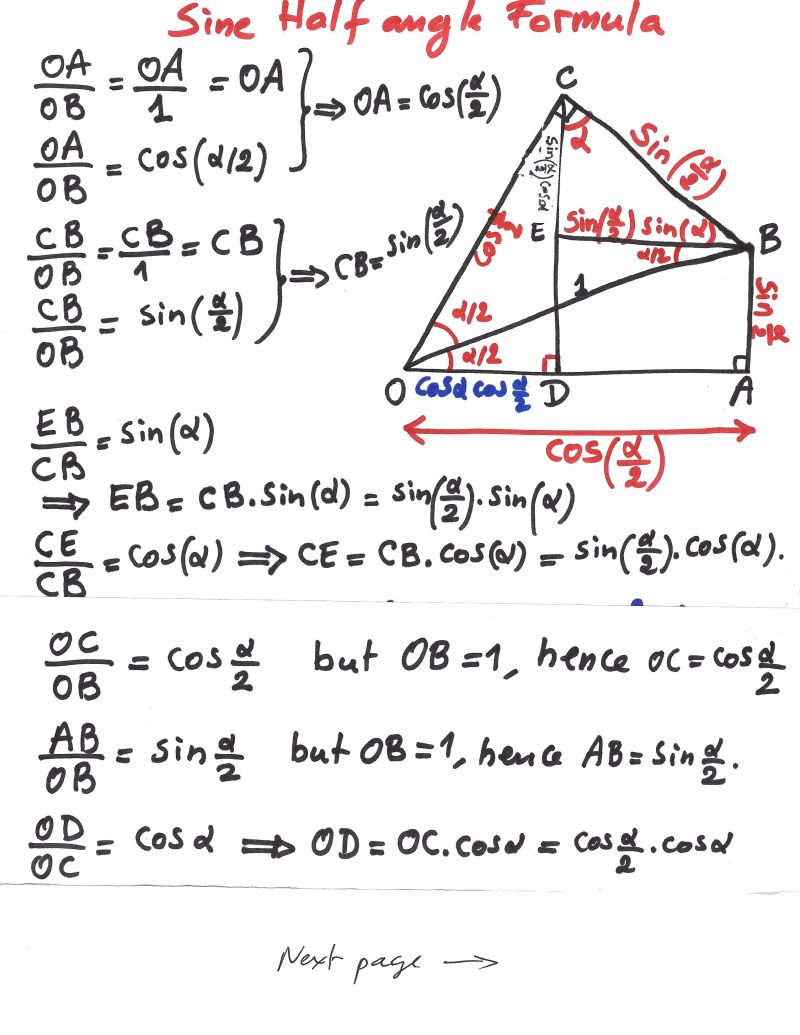 Sine Half angle Formula
OA/OB = OA/1 = OA
OA/OB = cos(α/2)
⇒ OA = cos(α/2)
CB/OB = CB/1 = CB
CB/OB = sin(α/2)
⇒ CB = sin(α/2)
C
α
sin(α/2) cosα
Sin(α/2)
E
Sin(α/2) sin(α)
B
α/2
1
α/2
α/2
Sin α/2
O
cosα cos α/2
D
A
cos(α/2)
EB/CB = sin(α)
⇒ EB = CB.Sin(α) = sin(α/2).sin(α)
CE/CB = cos(α) ⇒ CE = CB.cos(α) = sin(α/2).cos(α).
OC/OB = cos α/2 but OB = 1, hence OC = cos α/2
AB/OB = sin α/2 but OB = 1, hence AB = sin α/2.
OD/OC = cos α ⇒ OD = OC.cosα = cos α/2 . cosα
Next page →